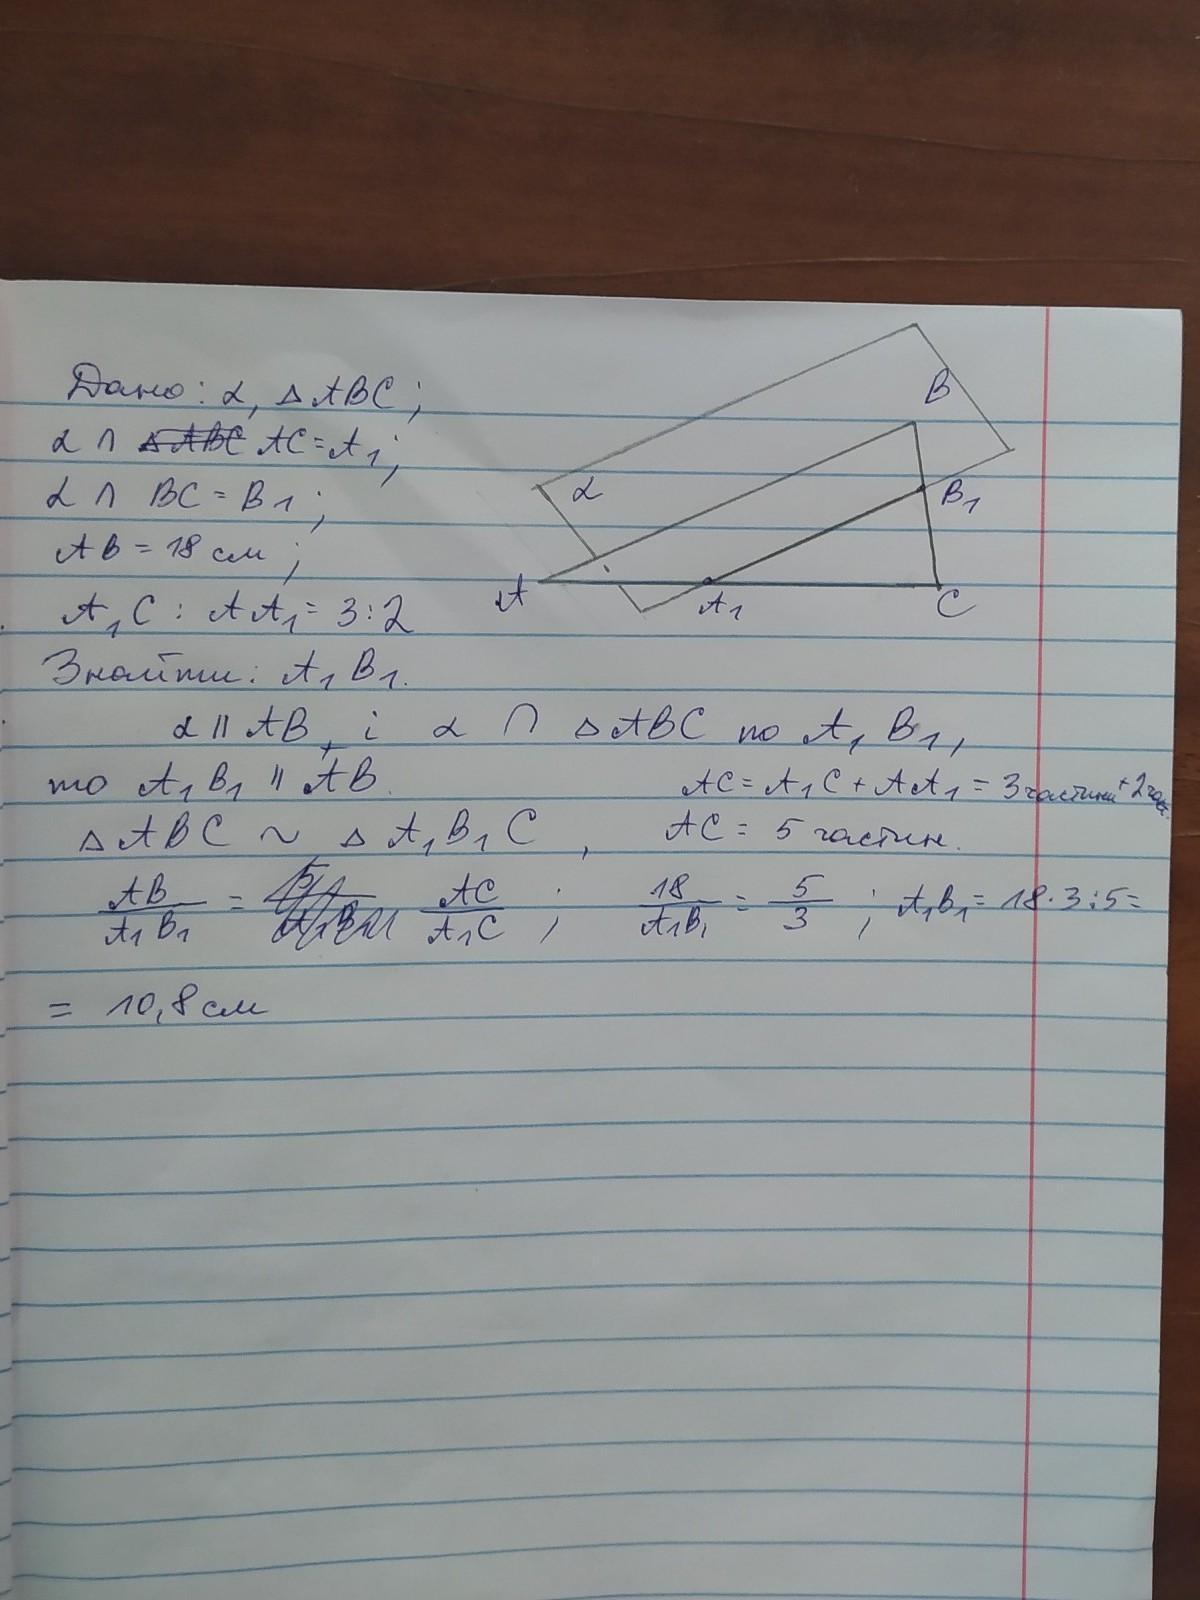 Дано: α, △ABC;
α ∩ AC = A₁;
α ∩ BC = B₁;
AB = 18 см;
A₁C : AA₁ = 3:2
Знайти: A₁B₁.
B
α
B₁
A
A₁
C
α || AB, і α ∩ △ABC по A₁B₁,
то A₁B₁ || AB.
AC = A₁C + AA₁ = 3 частини + 2 част.
△ABC ~ △A₁B₁C, AC = 5 частин.
AB/A₁B₁ = AC/A₁C ; 18/A₁B₁ = 5/3 ; A₁B₁ = 18·3:5 =
= 10,8 см